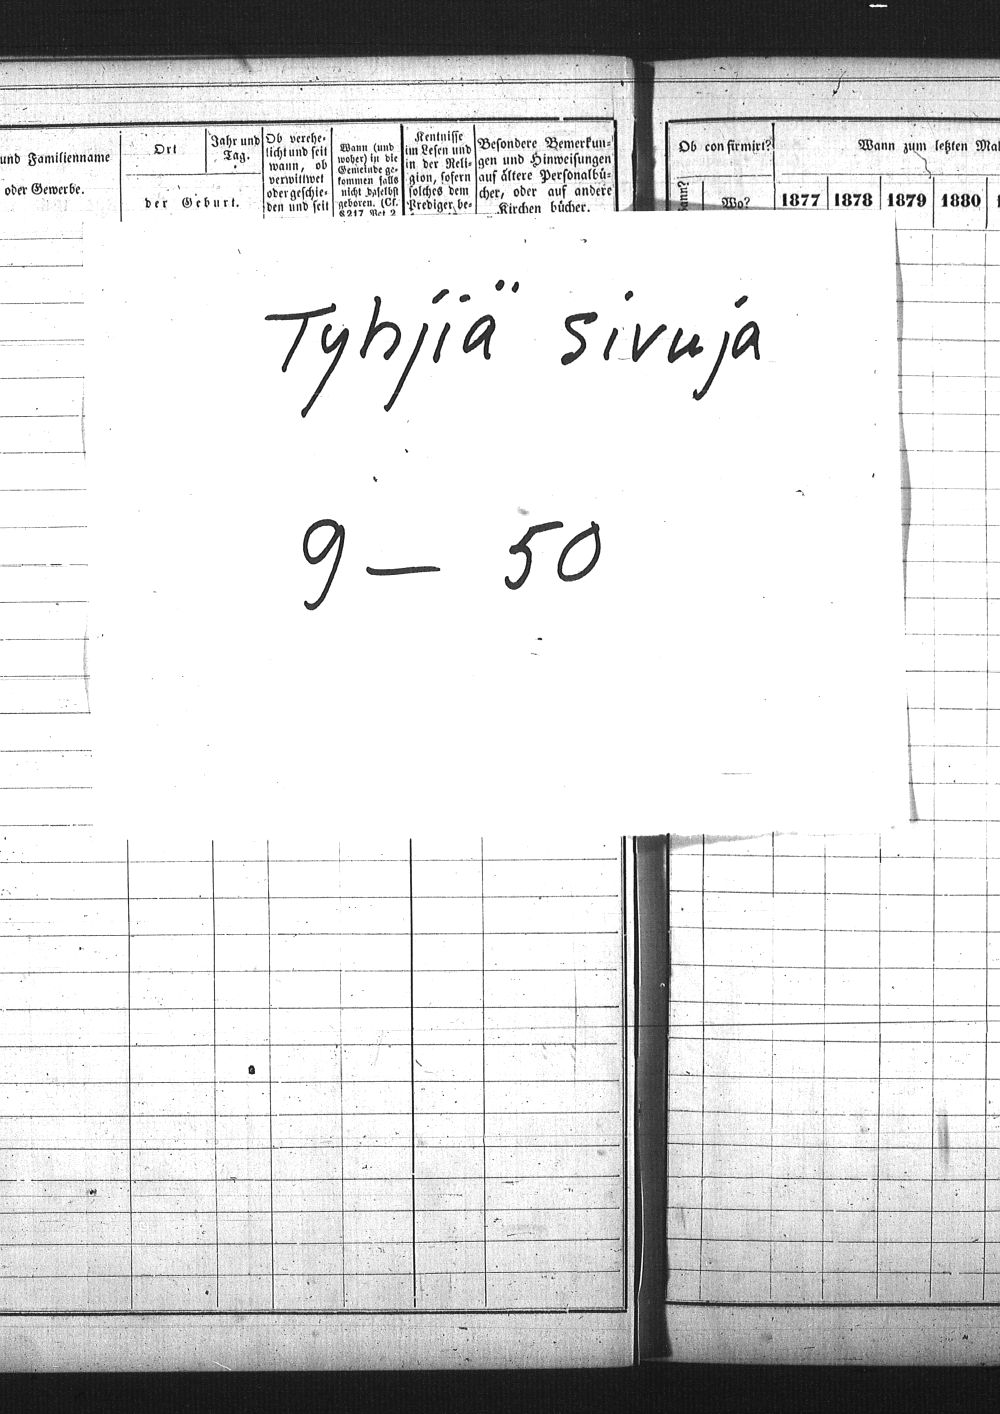 und Familienname
oder Gewerbe.
Ort
Jahr und
Tag.
der Geburt.
Ob verehe-
licht und seit
wann, ob
verwittwet
oder geschie-
den und seit
Wann (und
woher) in die
Gemeinde ge-
kommen falls
nicht daselbst
geboren. (Cf.
§ 217
Kentnisse
im Lesen und
in der Reli-
gion, sofern
solches dem
Prediger be-
Besondere Bemerkun-
gen und Hinweisungen
auf ältere Personalbü-
cher, oder auf andere
Kirchen bücher.
Ob confirmirt?
Wo?
Wann zum letzten Mal
1877 1878 1879 1880
Tyhjiä sivuja
9 — 50